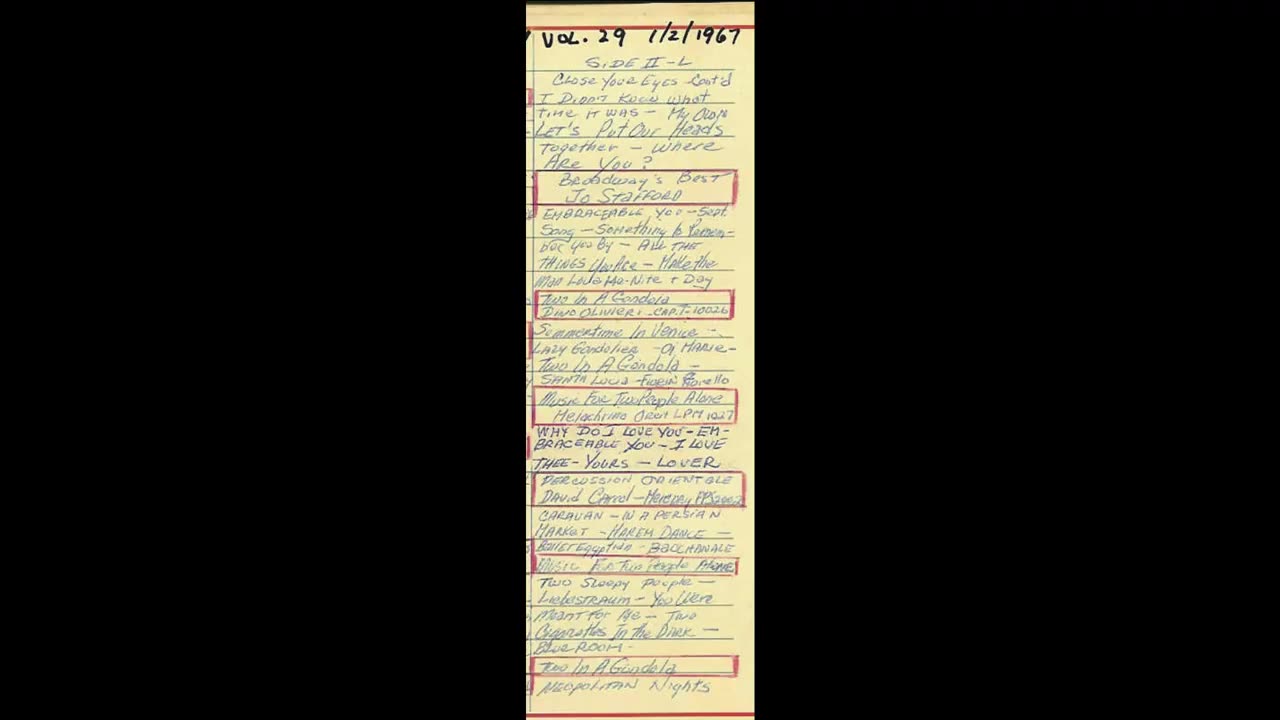 VOL. 29 1/2/1967
SIDE II-L
Close Your Eyes Cont'd
I Didn't Know What
Time It Was - My Own
Let's Put Our Heads
Together - Where
Are You?
Broadway's Best
Jo Stafford
EMBRACEABLE YOU - Sept.
Song - Something to Remem-
ber You By - ALL THE
THINGS You Are - Make the
Man Love Me - Nite + Day
Two In A Gondola
DINO OLIVIERI - CAP. T-10026
Summertime In Venice -
LAZY Gondolier - Oi MARIE -
Two In A Gondola -
SANTA Lucia -
Music For Two People Alone
Melachrino Orch LPM 1027
WHY DO I LOVE YOU - EM-
BRACEABLE YOU - I LOVE
THEE - YOURS - LOVER
PERCUSSION ORIENTALE
David Carrol - Mercury
CARAVAN - IN A PERSIAN
MARKET - HAREM DANCE -
Ballet Egyptian - BACCHANALE
Music For Two People ALONE
Two Sleepy People -
Liebestraum - You Were
Meant For Me - Two
Cigarettes In the Dark -
BLUE ROOM -
Two In A Gondola
NEOPOLITAN Nights